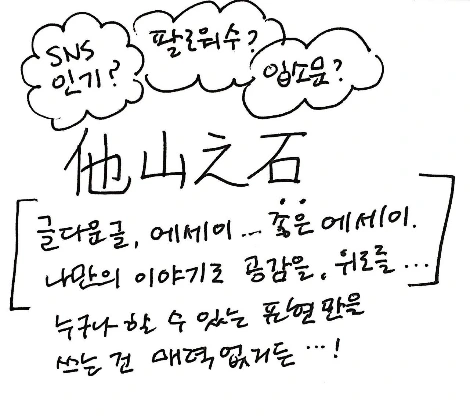 SNS
인기?
팔로워수?
입소문?
他山之石
글다운글, 에세이... 좋은 에세이.
나만의 이야기로 공감을, 위로를...
누구나 할 수 있는 표현만을
쓰는 건 매력없거든...!